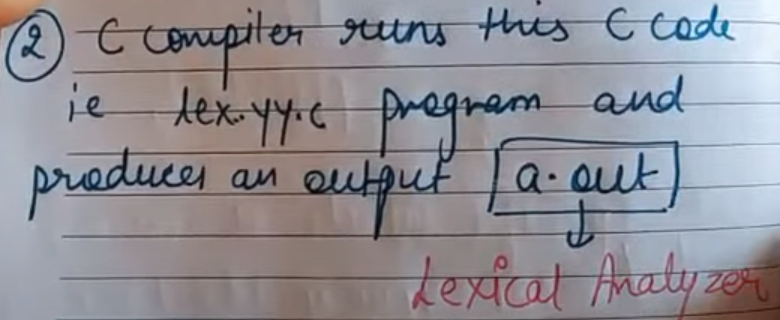 ② C compiler runs this C code
ie lex.yy.c program and
produces an output a.out
Lexical Analyzer